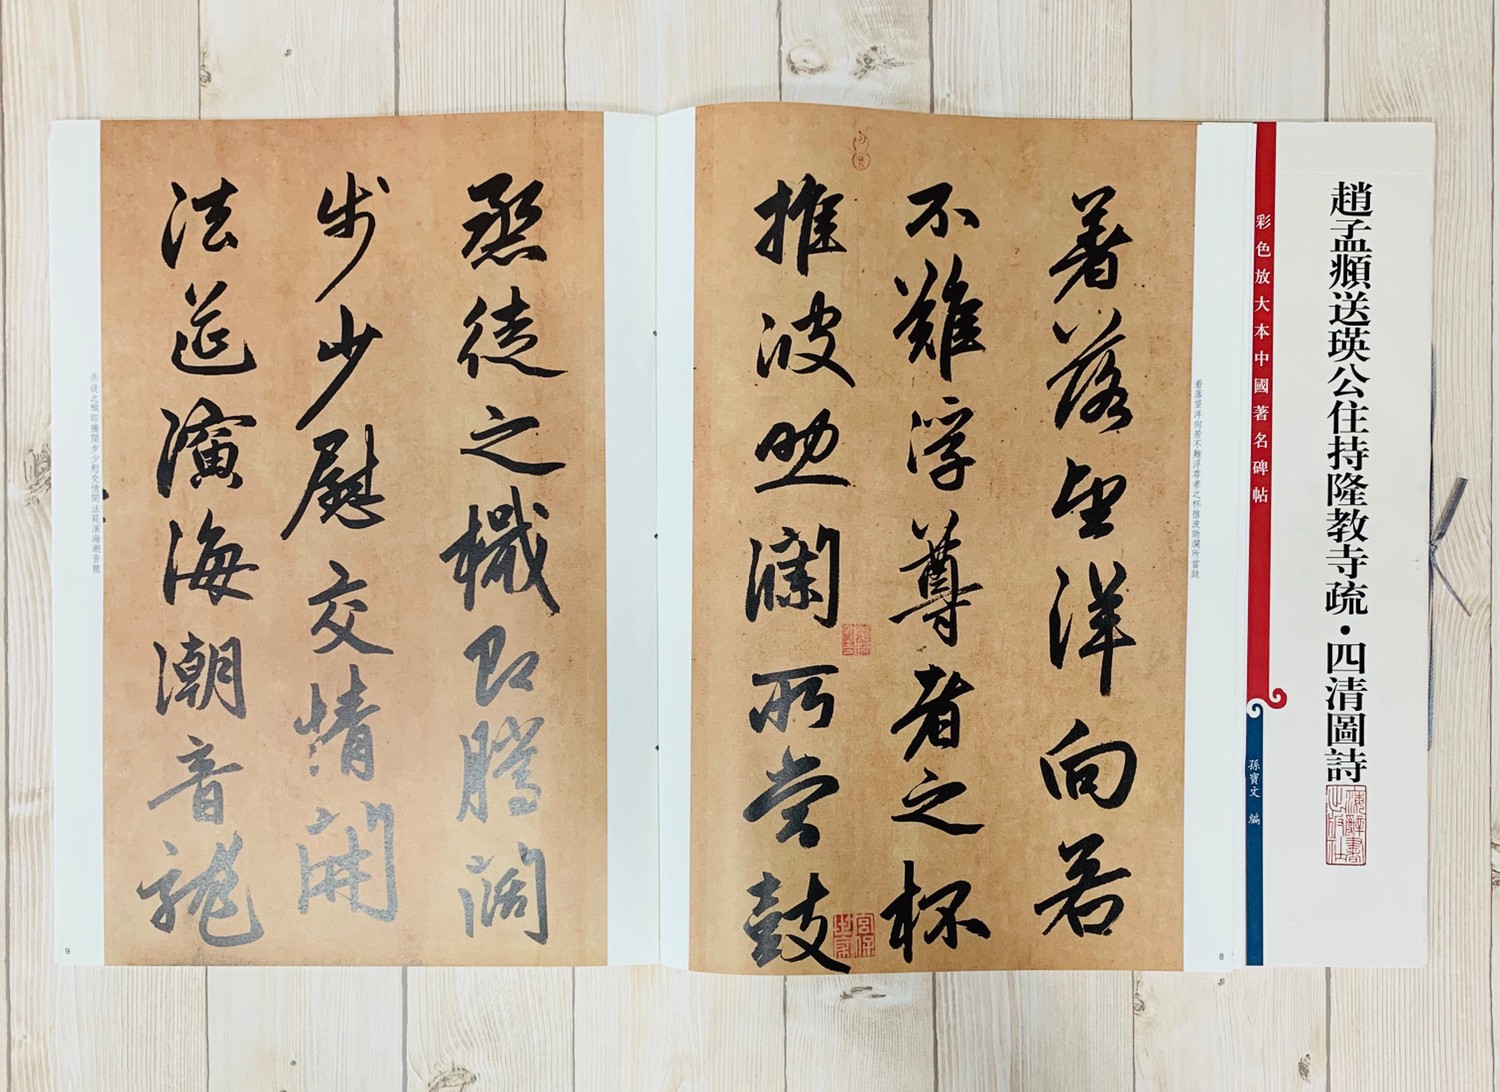 趙孟頫送瑛公住持隆教寺疏・四清圖詩
海辭書出版社
彩色放大本中國著名碑帖
孫寶文 編
著落望洋向若
不難浮尊者之杯
推波助瀾所當鼓
着落望洋向若不難浮尊者之杯推波助瀾所當鼓
8
烝徒之檝即騰闊
步少慰交情開
法筵演海潮音龍
烝徒之檝即騰闊步少慰交情開法筵演海潮音龍
9